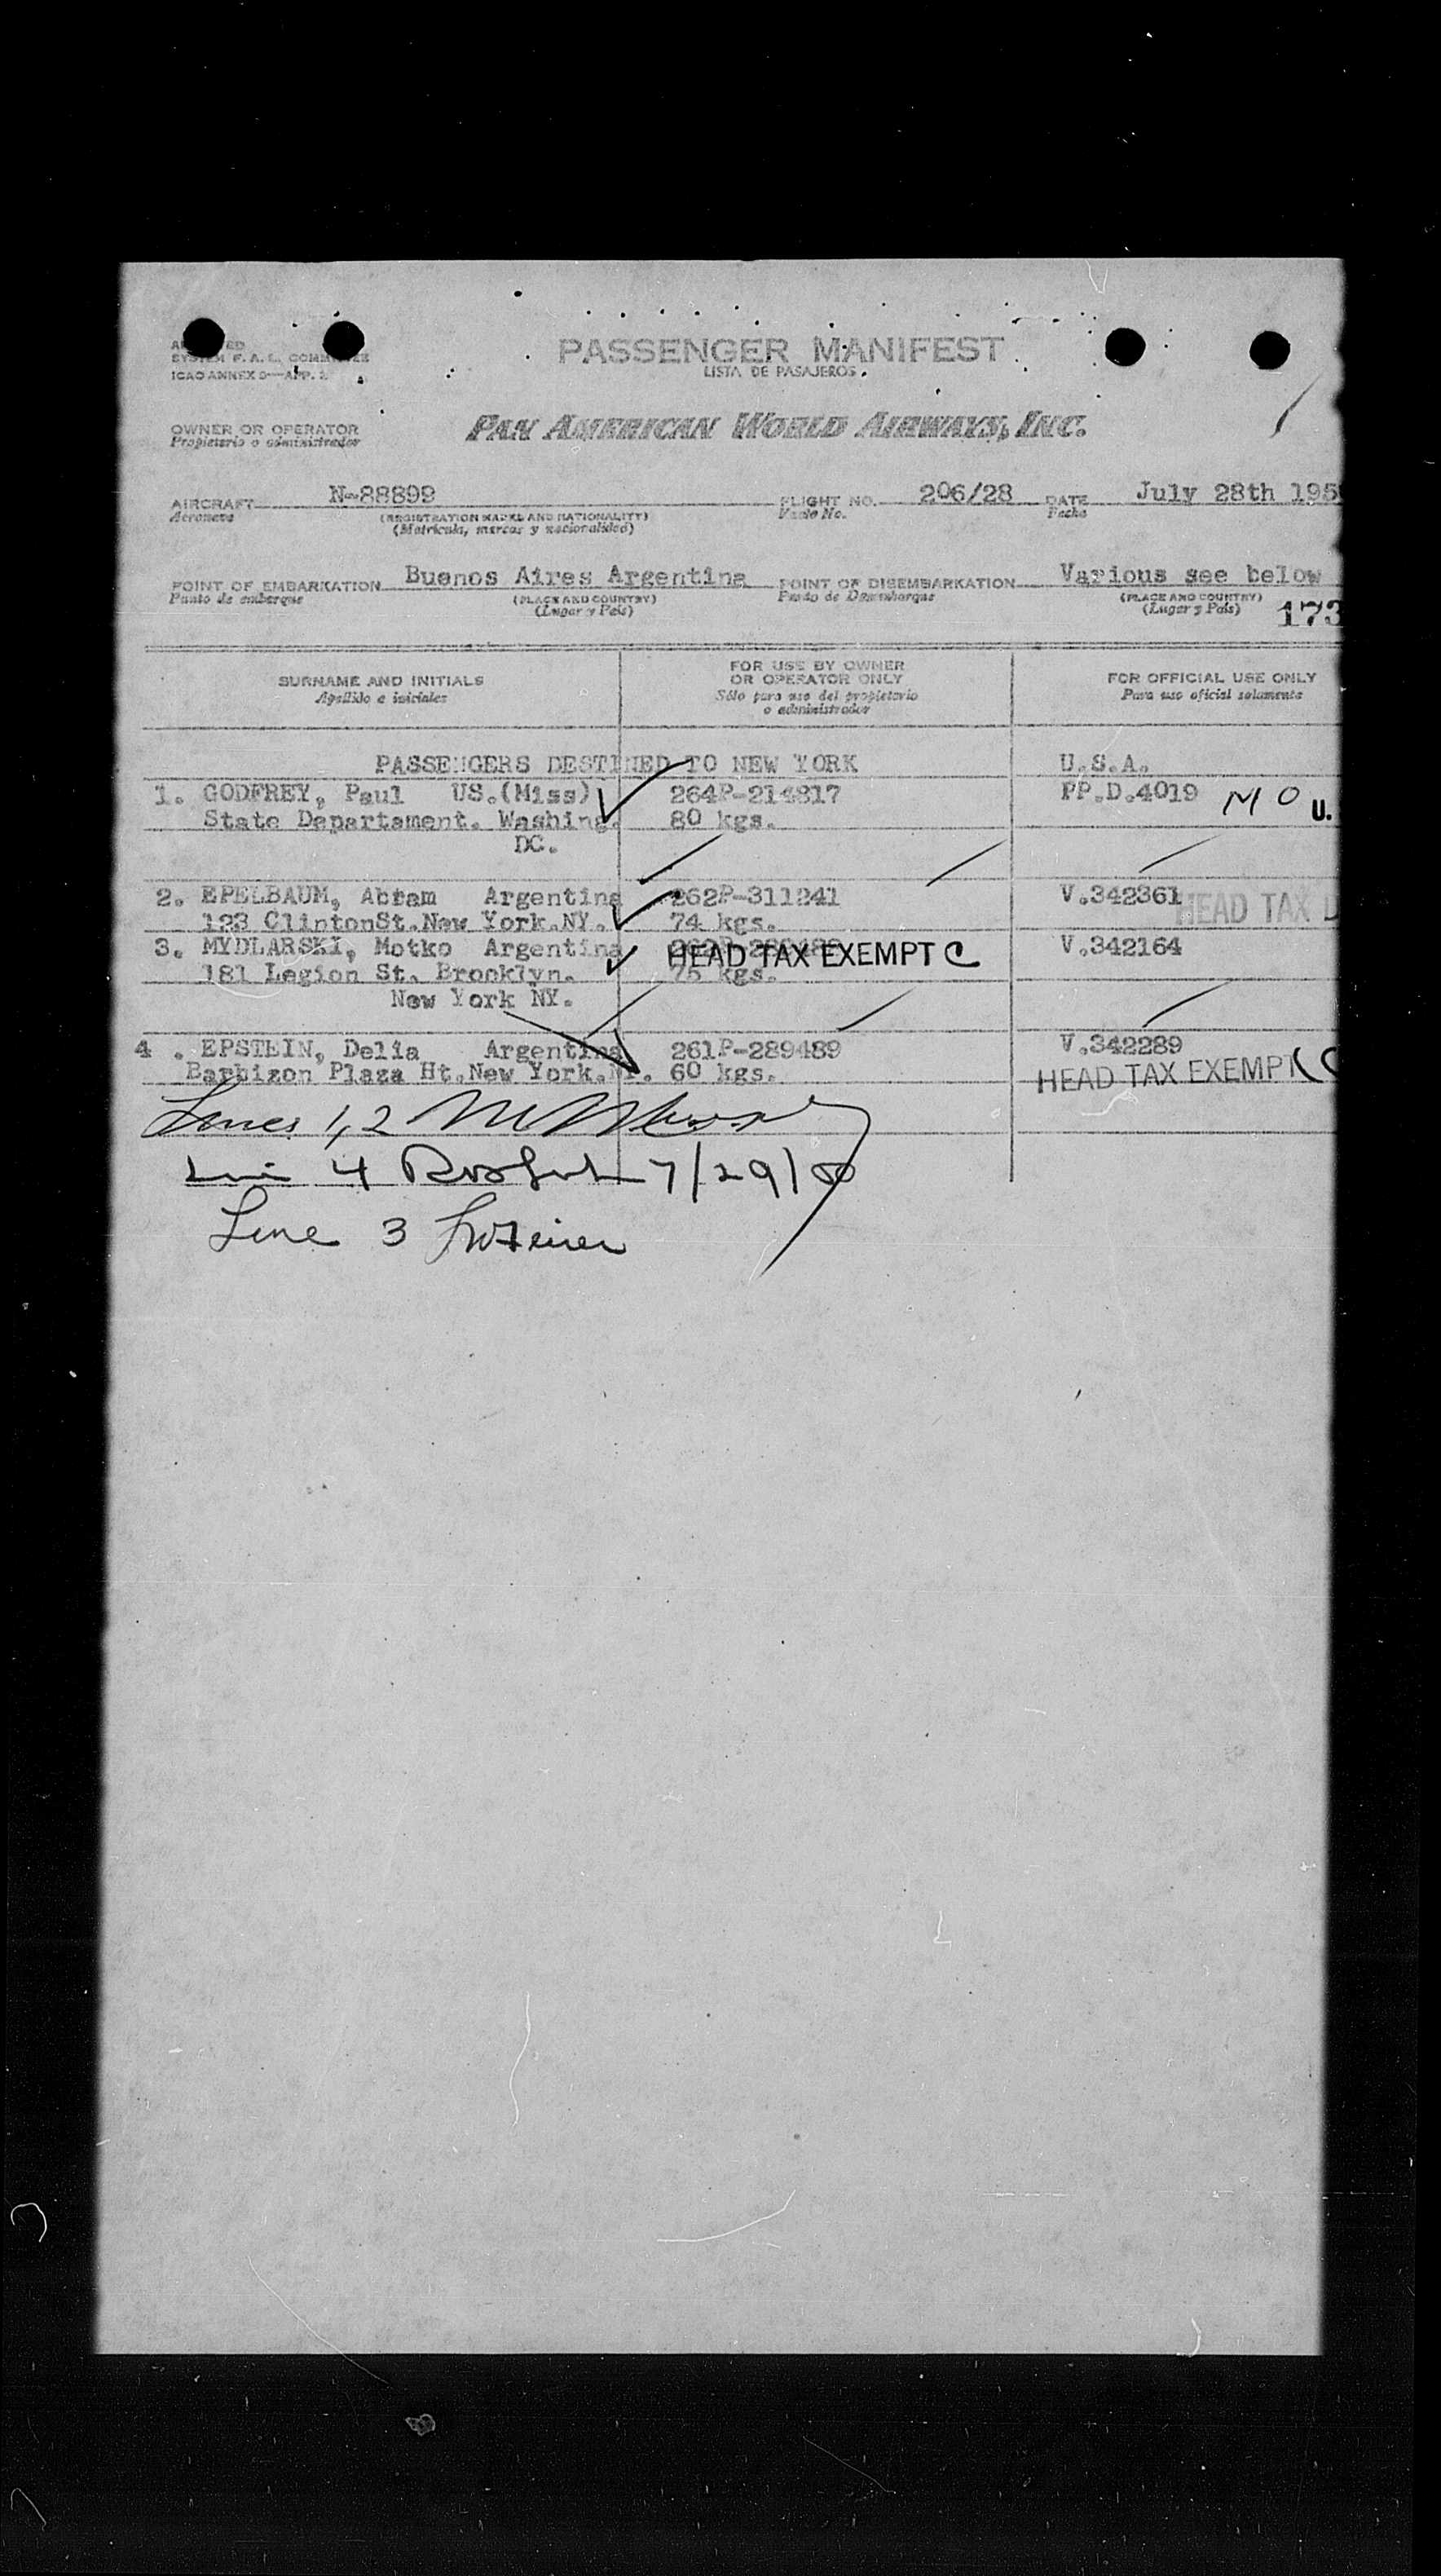 SYSTEM F. A. L. COMMITTEE
ICAO ANNEX 9—APP. 2
PASSENGER MANIFEST
LISTA DE PASAJEROS
OWNER OR OPERATOR
Propietario o administrador
PAN AMERICAN WORLD AIRWAYS, INC.
AIRCRAFT N-88899 FLIGHT NO. 206/28 DATE July 28th 195
Aeronave (REGISTRATION MARKS AND NATIONALITY) Vuelo No. Fecha
(Matrícula, marcas y nacionalidad)
POINT OF EMBARKATION Buenos Aires Argentina POINT OF DISEMBARKATION Various see below
Punto de embarque (PLACE AND COUNTRY) Punto de Desembarque (PLACE AND COUNTRY)
(Lugar y País) (Lugar y País) 173
SURNAME AND INITIALS FOR USE BY OWNER OR OPERATOR ONLY FOR OFFICIAL USE ONLY
Apellido e iniciales Sólo para uso del propietario o administrador Para uso oficial solamente
PASSENGERS DESTINED TO NEW YORK U.S.A.
1. GODFREY, Paul US.(Miss) 264P-214817 PP.D.4019 M O U.
State Departament. Washing. 80 kgs.
DC.
2. EPELBAUM, Abram Argentina 262P-311241 V.342361 HEAD TAX
123 ClintonSt.New York.NY. 74 kgs.
3. MYDLARSKI, Motko Argentina HEAD TAX EXEMPT C V.342164
181 Legion St. Brooklyn. 75 kgs.
New York NY.
4 . EPSTEIN, Delia Argentina 261P-289489 V.342289
Barbizon Plaza Ht.New York.NY. 60 kgs. HEAD TAX EXEMPT C
Lines 1,2
4 7/29/50
Line 3